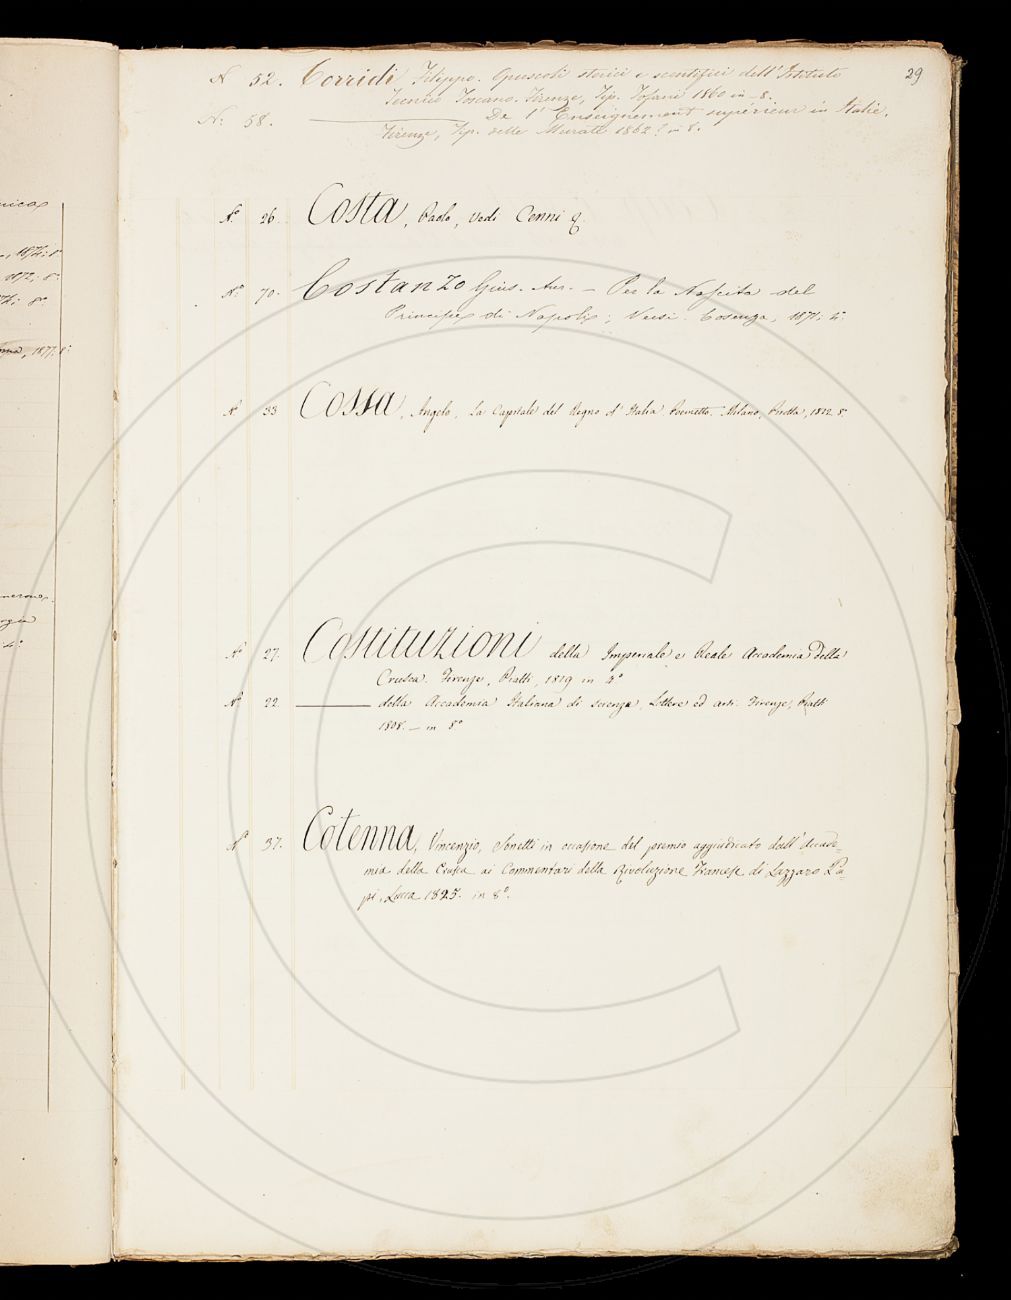 29
N. 52. Corridi Filippo. Opuscoli storici e scentifici dell'Istituto
Tecnico Toscano. Firenze, Tip. Tofani 1860 in-8.
N. 58. De l'Enseignement supérieur in Italie,
Firenze, Tip. delle Murate 1862? in 8.
N.° 26. Costa, Paolo, vedi Cenni &.
N.° 70. Costanzo Gius. Aur. — Per la Nascita del
Principe di Napoli; Versi. Cosenza, 1871, 4.°
N.° 33 Cossa, Angelo, La Capitale del Regno d'Italia Poemetto. Milano, Pirotta, 1812 8.°
N.° 27. Costituzioni della Imperiale e Reale Accademia della
Crusca. Firenze, Piatti, 1819 in 4.°
N.° 22 della Accademia Italiana di scienze, Lettere ed arti. Firenze, Piatti
1808. — in 8.°
N.° 37. Cotenna, Vincenzio, Sonetti in occasione del premio aggiudicato dall'Accade=
mia della Crusca ai Commentari della Rivoluzione Francese di Lazzaro Pa=
pi, Lucca 1825. in 8.°
, 1874; 8.°
1872; 8.°
8.°
, 1877; 8.°
4.°
C